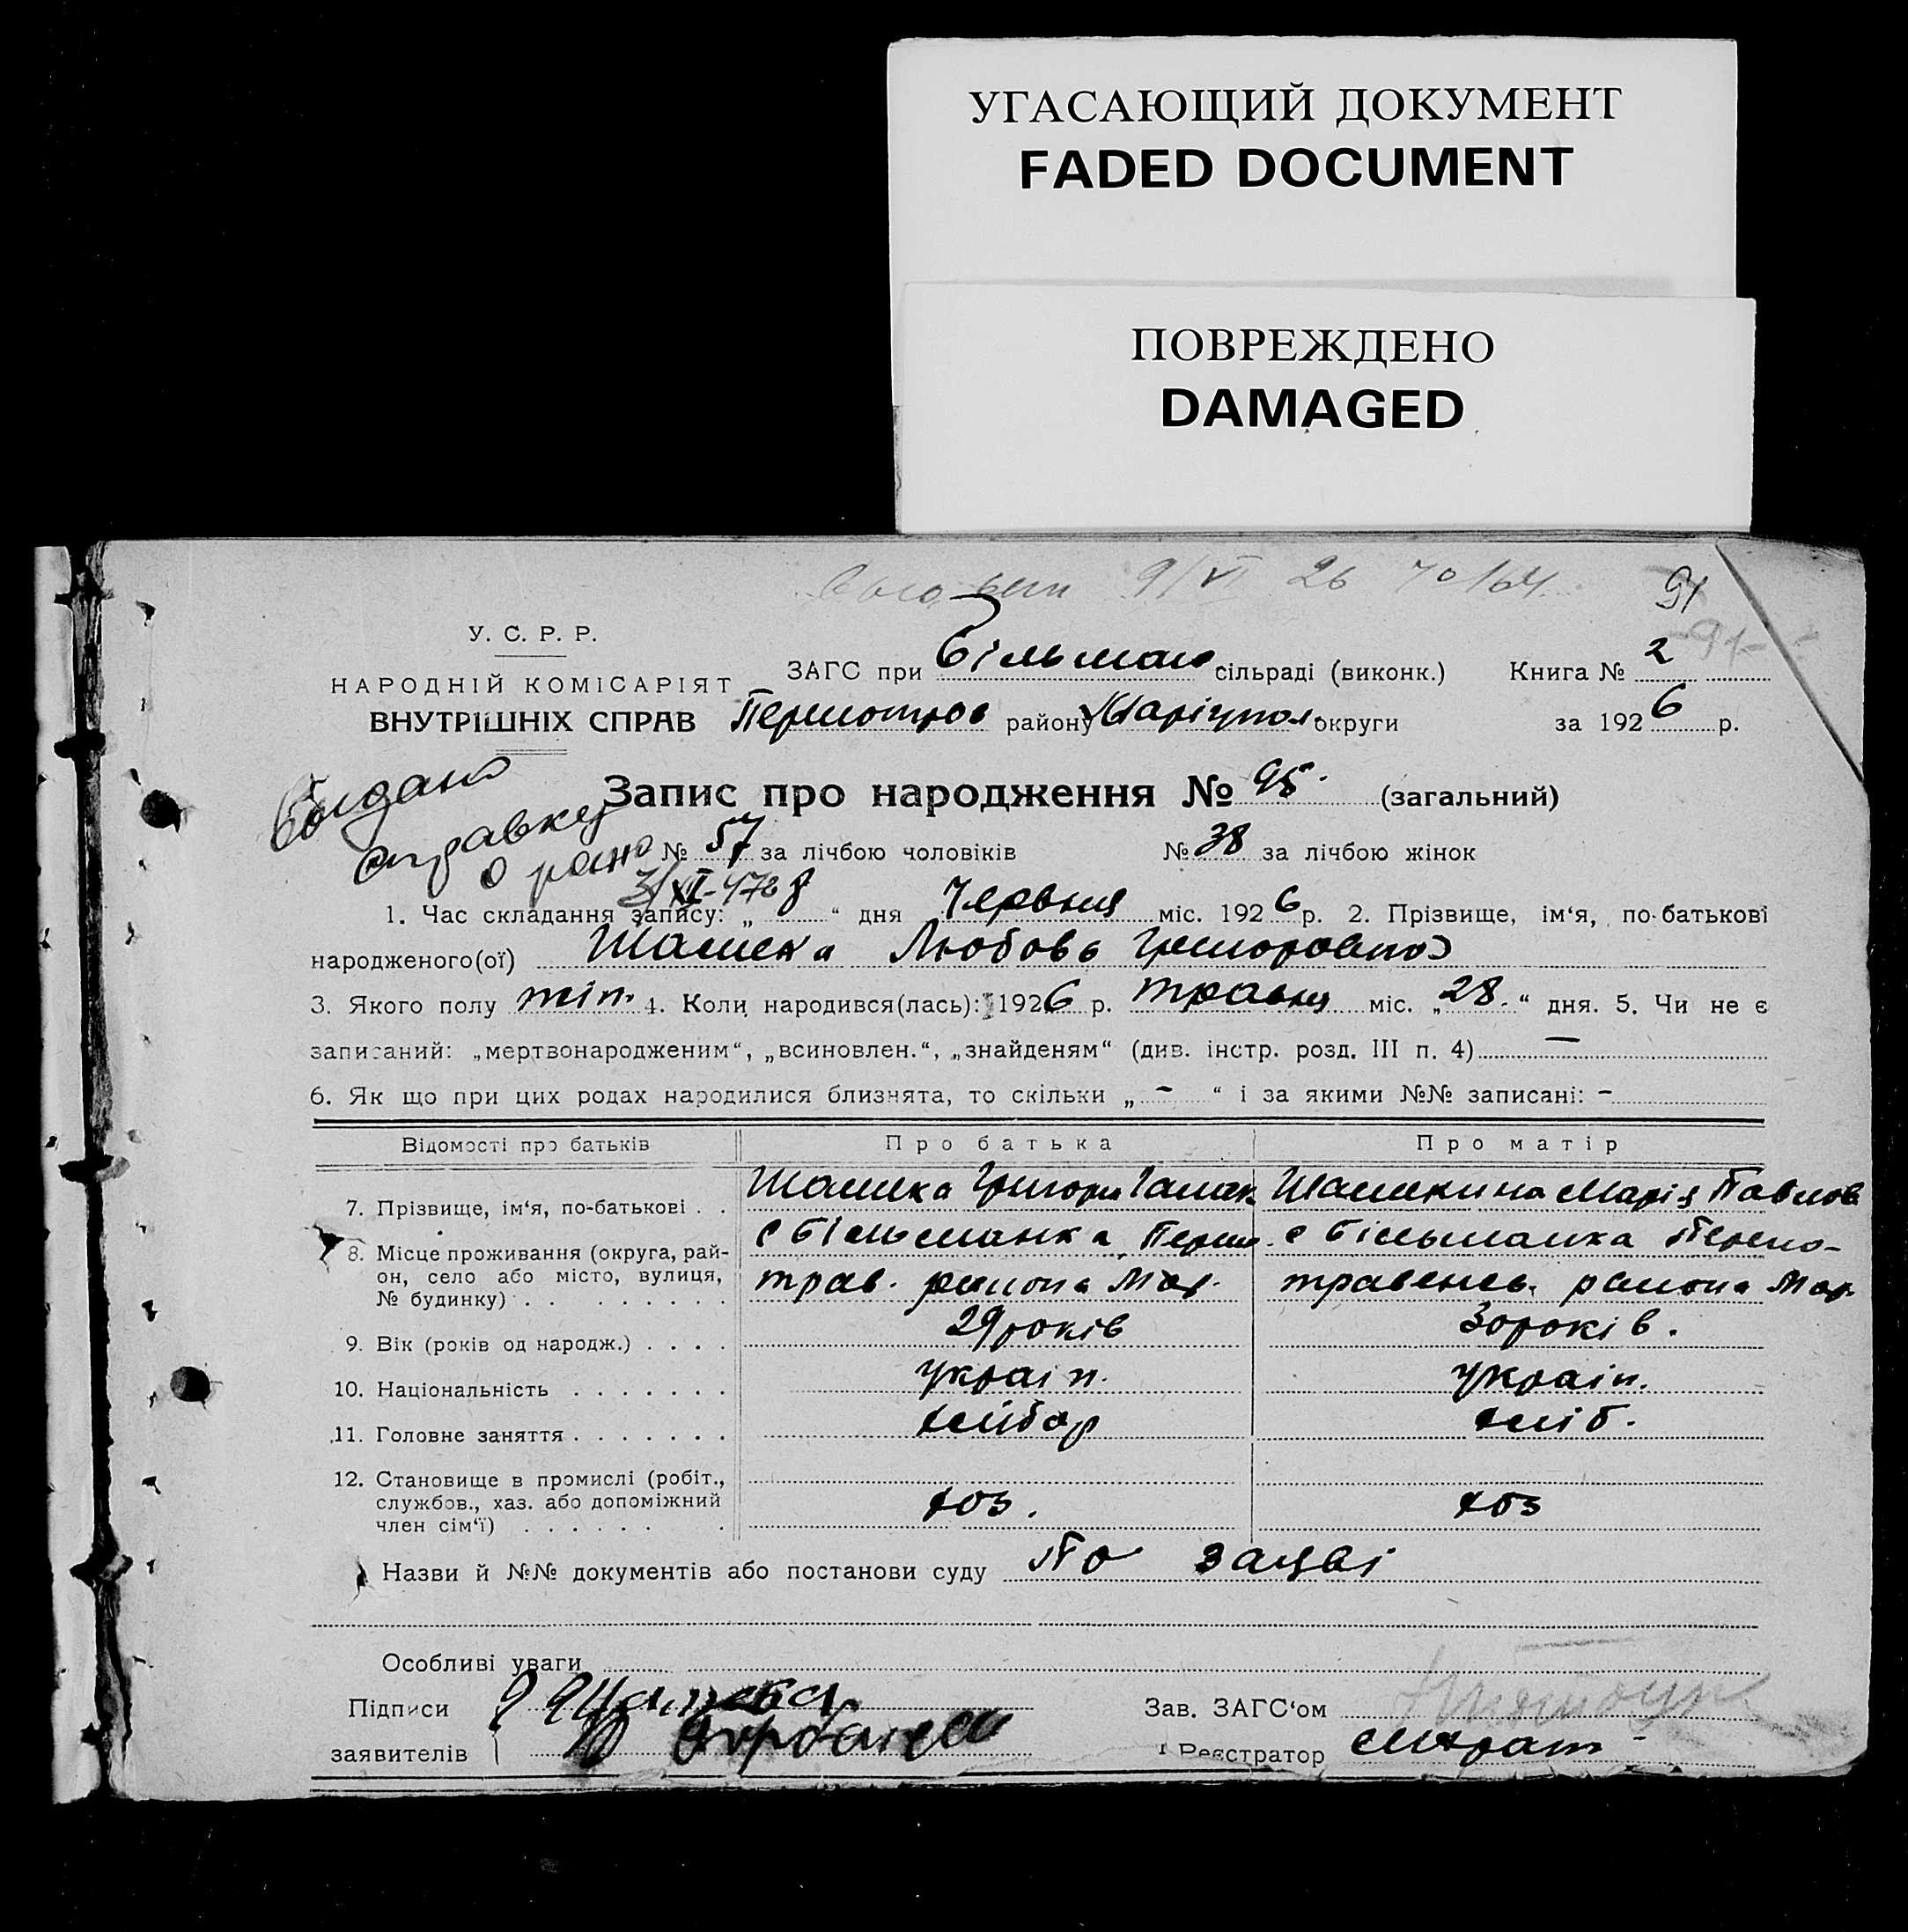 УГАСАЮЩИЙ ДОКУМЕНТ
FADED DOCUMENT
ПОВРЕЖДЕНО
DAMAGED
9/VI 26
91
91
У. С. Р. Р.
НАРОДНІЙ КОМІСАРІЯТ
ВНУТРІШНІХ СПРАВ
ЗАГС при Більман сільраді (виконк.) Книга № 2
району Маріупол. округи за 1926 р.
Видано
справку
о рожд
Запис про народження № 95. (загальний)
№ 57 за лічбою чоловіків № 38 за лічбою жінок
1. Час складання запису: „ 8 “ дня Червня міс. 1926 р. 2. Прізвище, ім‘я, по-батькові
народженого(ої) Шашека Любовь Григоровна
3. Якого полу жін. 4. Коли народився(лась): 1926 р. травня міс. „28.“ дня. 5. Чи не є
записаний: „мертвонародженим“, „всиновлен.“, „знайденям“ (див. інстр. розд. III п. 4) —
6. Як що при цих родах народилися близнята, то скільки „ - “ і за якими №№ записані: -
Відомості про батьків Про батька Про матір
7. Прізвище, ім‘я, по-батькові . . Шашека Григори Шашекина Марія Павлов
8. Місце проживання (округа, рай-
он, село або місто, вулиця,
№ будинку) . . . . . . . .
с Більманка Перш. с Більманка
трав. района Мар. травенев. района Мар.
9. Вік (років од народж.) . . . . 29 років 30 років.
10. Національність . . . . . . . україн. україн.
11. Головне заняття . . . . . . . хлібор хліб.
12. Становище в промислі (робіт.,
службов., хаз. або допоміжний
член сім‘ї) . . . . . . .
хоз. хоз
Назви й №№ документів або постанови суду По заяві
Особливі уваги
Підписи Зав. ЗАГС‘ом
заявителів Реєстратор